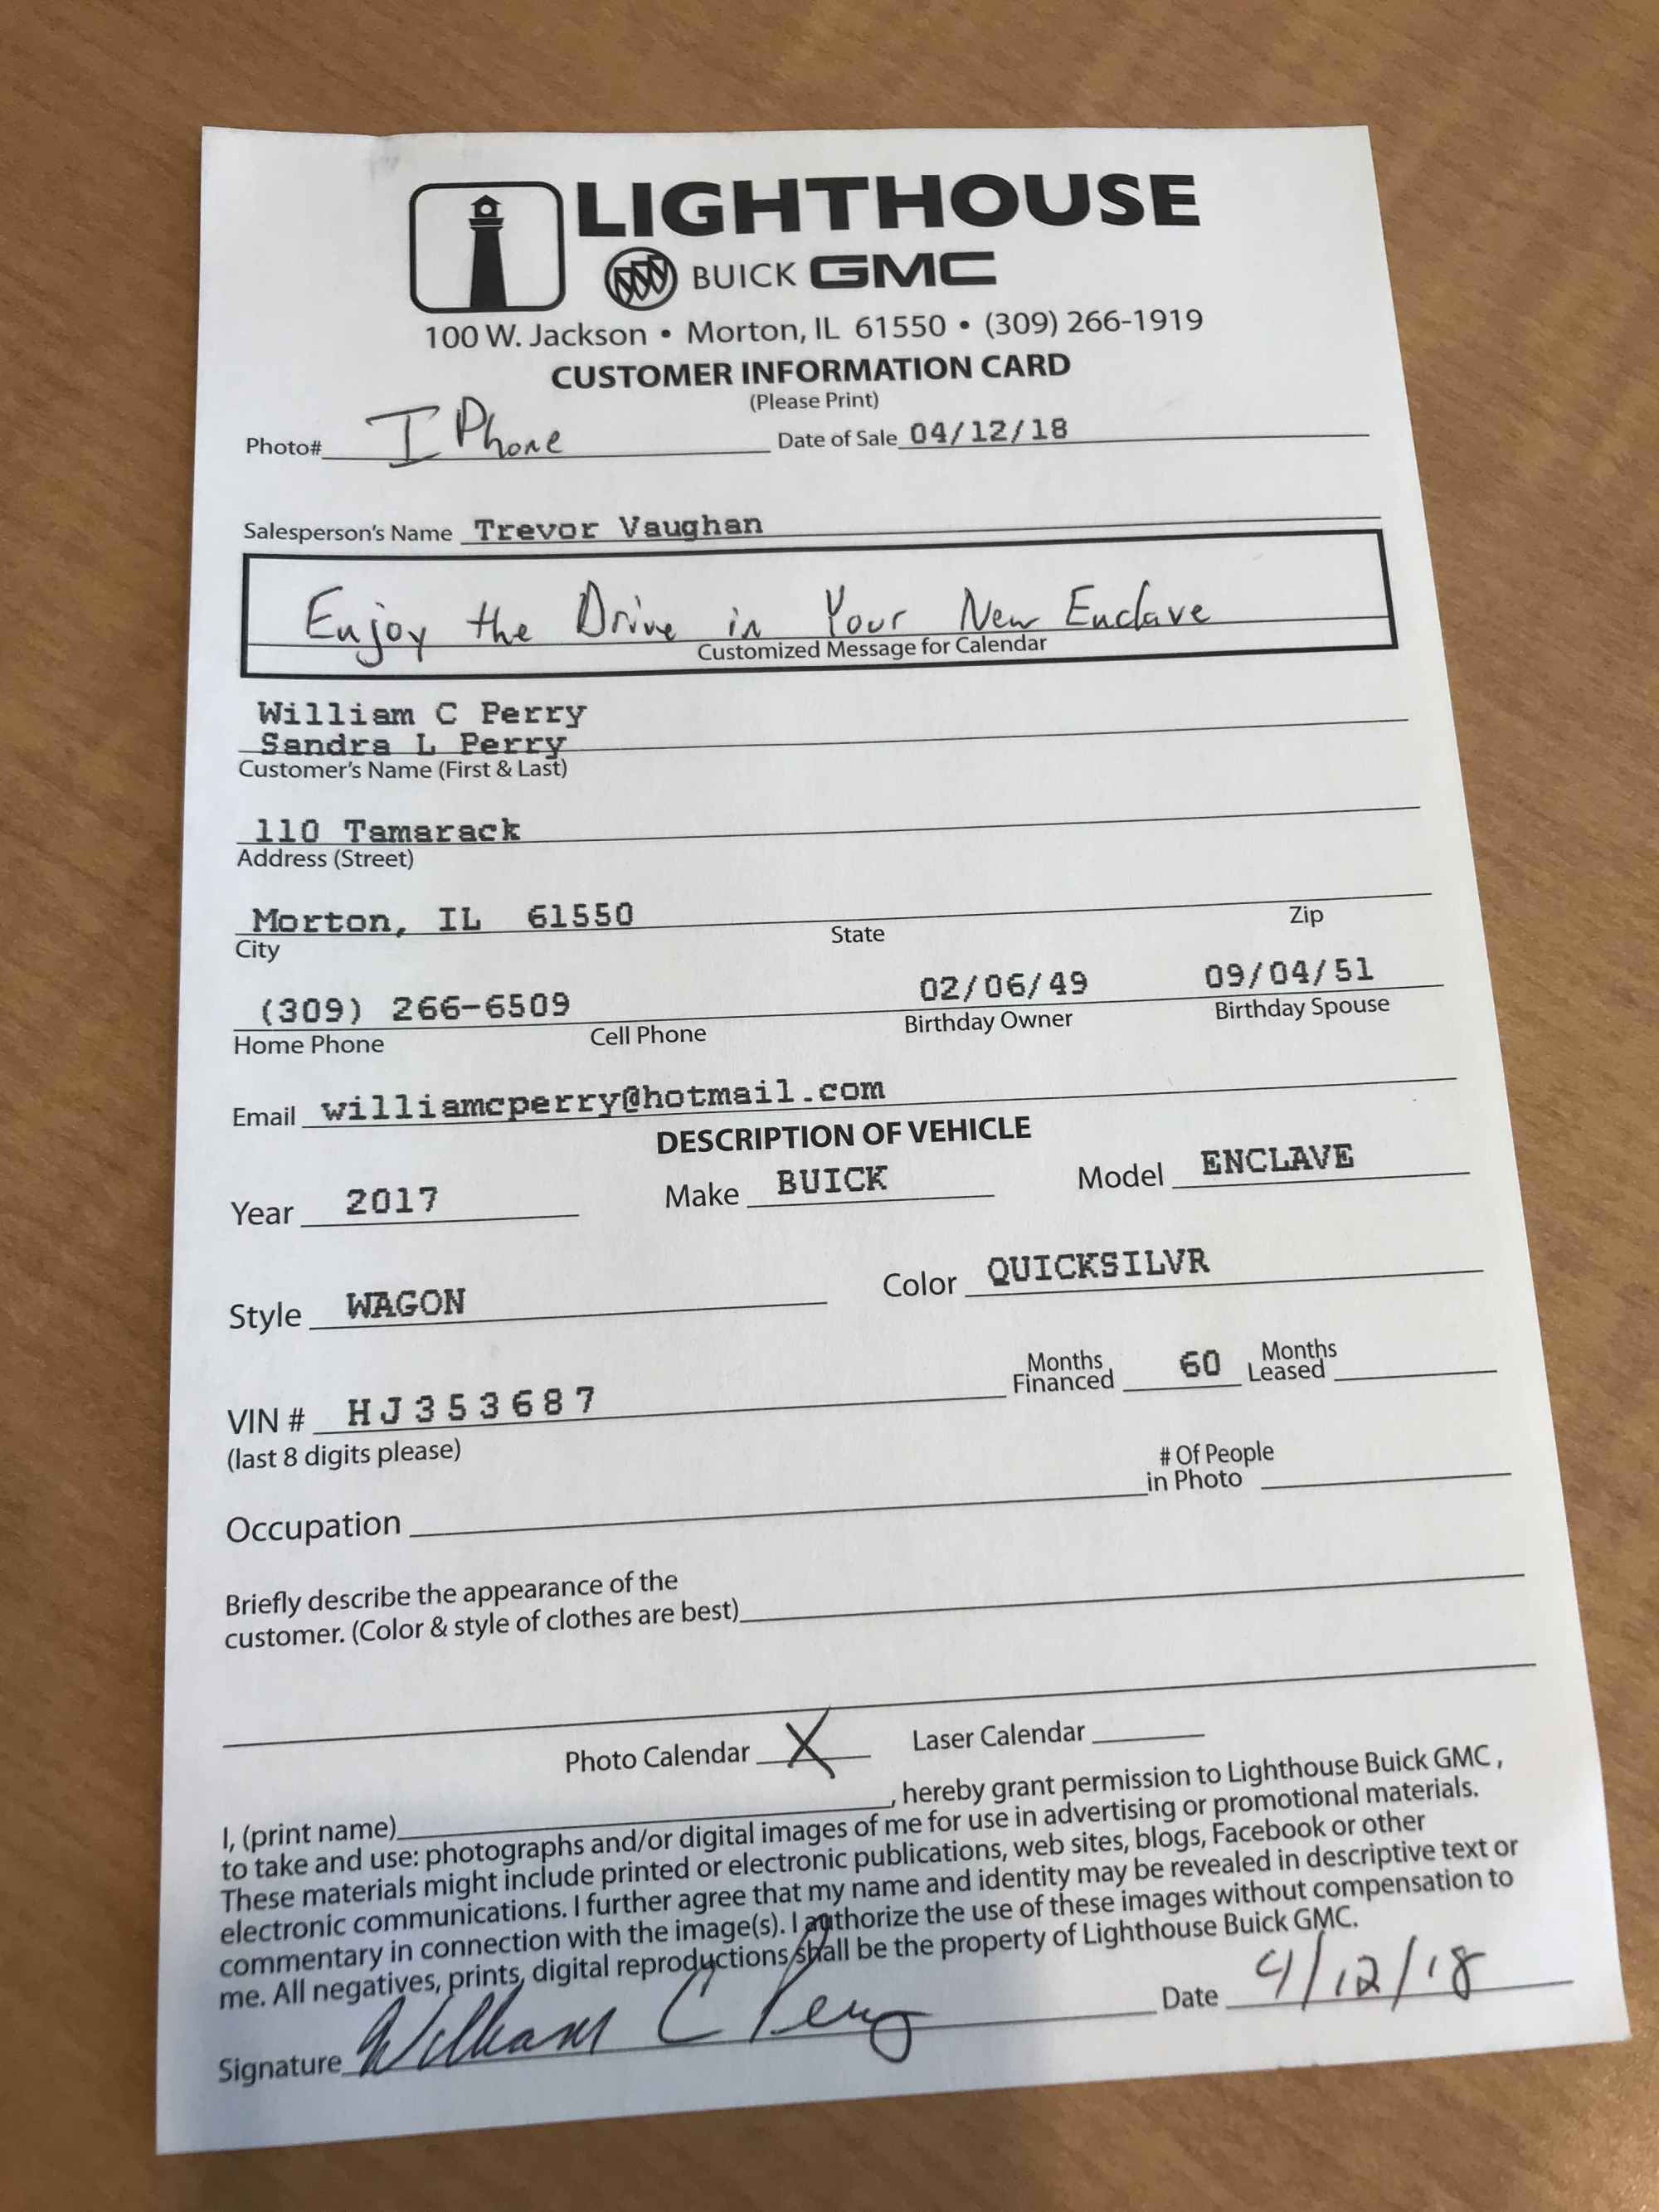 LIGHTHOUSE
BUICK GMC
100 W. Jackson • Morton, IL 61550 • (309) 266-1919
CUSTOMER INFORMATION CARD
(Please Print)
Photo# I Phone Date of Sale 04/12/18
Salesperson's Name Trevor Vaughan
Enjoy the Drive in Your New Enclave
Customized Message for Calendar
William C Perry
Sandra L Perry
Customer's Name (First & Last)
110 Tamarack
Address (Street)
Morton, IL 61550
City State Zip
(309) 266-6509 02/06/49 09/04/51
Home Phone Cell Phone Birthday Owner Birthday Spouse
Email williamcperry@hotmail.com
DESCRIPTION OF VEHICLE
Year 2017 Make BUICK Model ENCLAVE
Style WAGON Color QUICKSILVR
VIN # HJ353687 Months Financed 60 Months Leased
(last 8 digits please)
# Of People
Occupation in Photo
Briefly describe the appearance of the
customer. (Color & style of clothes are best)
Photo Calendar X Laser Calendar
I, (print name) , hereby grant permission to Lighthouse Buick GMC ,
to take and use: photographs and/or digital images of me for use in advertising or promotional materials.
These materials might include printed or electronic publications, web sites, blogs, Facebook or other
electronic communications. I further agree that my name and identity may be revealed in descriptive text or
commentary in connection with the image(s). I authorize the use of these images without compensation to
me. All negatives, prints, digital reproductions shall be the property of Lighthouse Buick GMC.
Signature William C Perry Date 4/12/18